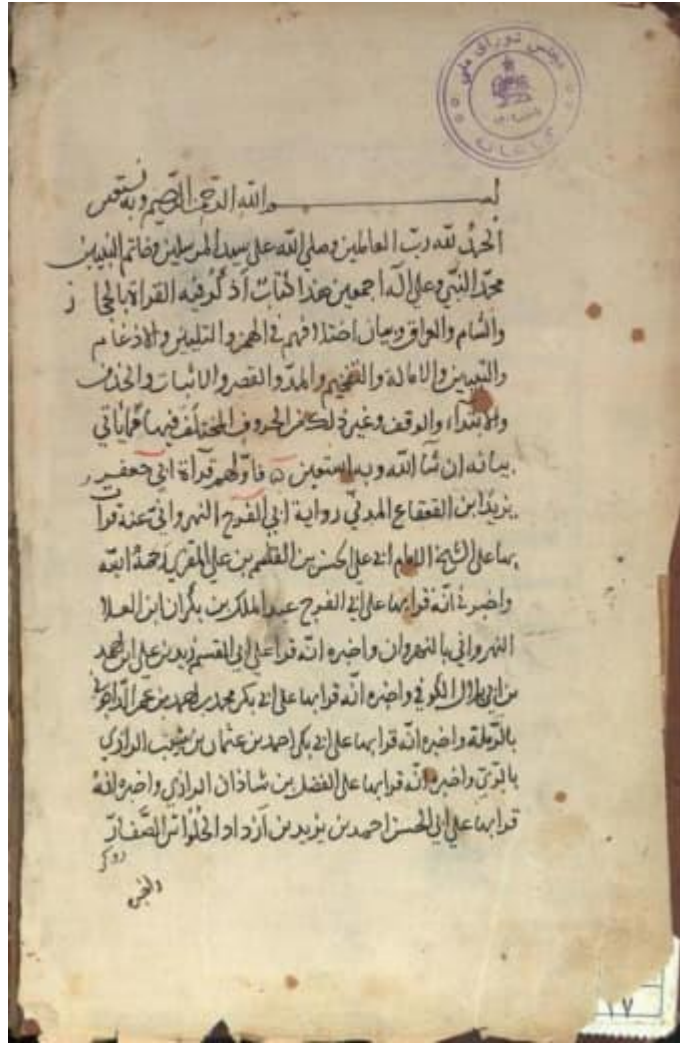 مجلس شورای ملی
کتابخانه
بسم الله الرحمن الرحيم وبه نستعين
الحمد لله رب العالمين وصلي الله علي سيد المرسلين وخاتم النبيين
محمد النبي وعلي اله اجمعين هذا كتاب أذكر فيه القراة بالحجاز
والشام والعراق وبيان اختلافهم في الهمز والتليين والادغام
والتبيين والامالة والتفخيم والمد والقصر والاثبات والحذف
والابتداء والوقف وغير ذلك من الحروف المختلف فيها مما ياتي
بيانه ان شا الله وبه استعين فاولهم قرآة ابي جعفر
يزيد ابن القعقاع المدني رواية ابي الفرج النهرواني عنه قرات
بها علي الشيخ الامام ابي علي الحسن بن القاسم بن علي المقري رحمة الله
واخبرني انه قرا بها علي ابي الفرج عبد الملك بن بكران ابن العلا
النهرواني بالنهروان واخبره انه قرا علي ابي القسم زيد بن علي ابن احمد
بن ابي بلال الكوفي واخبره انه قرا بها علي ابي بكر محمد بن احمد بن عمر الداجوني
بالرملة واخبره انه قرا بها علي ابي بكر احمد بن عثمان بن شبيب الرازي
بالري واخبره انه قرا بها علي الفضل بن شاذان الرازي واخبره انه
قرا بها علي ابي الحسن احمد بن يزيد بن أزداد الحلواني الصفار
واخبره
١٧